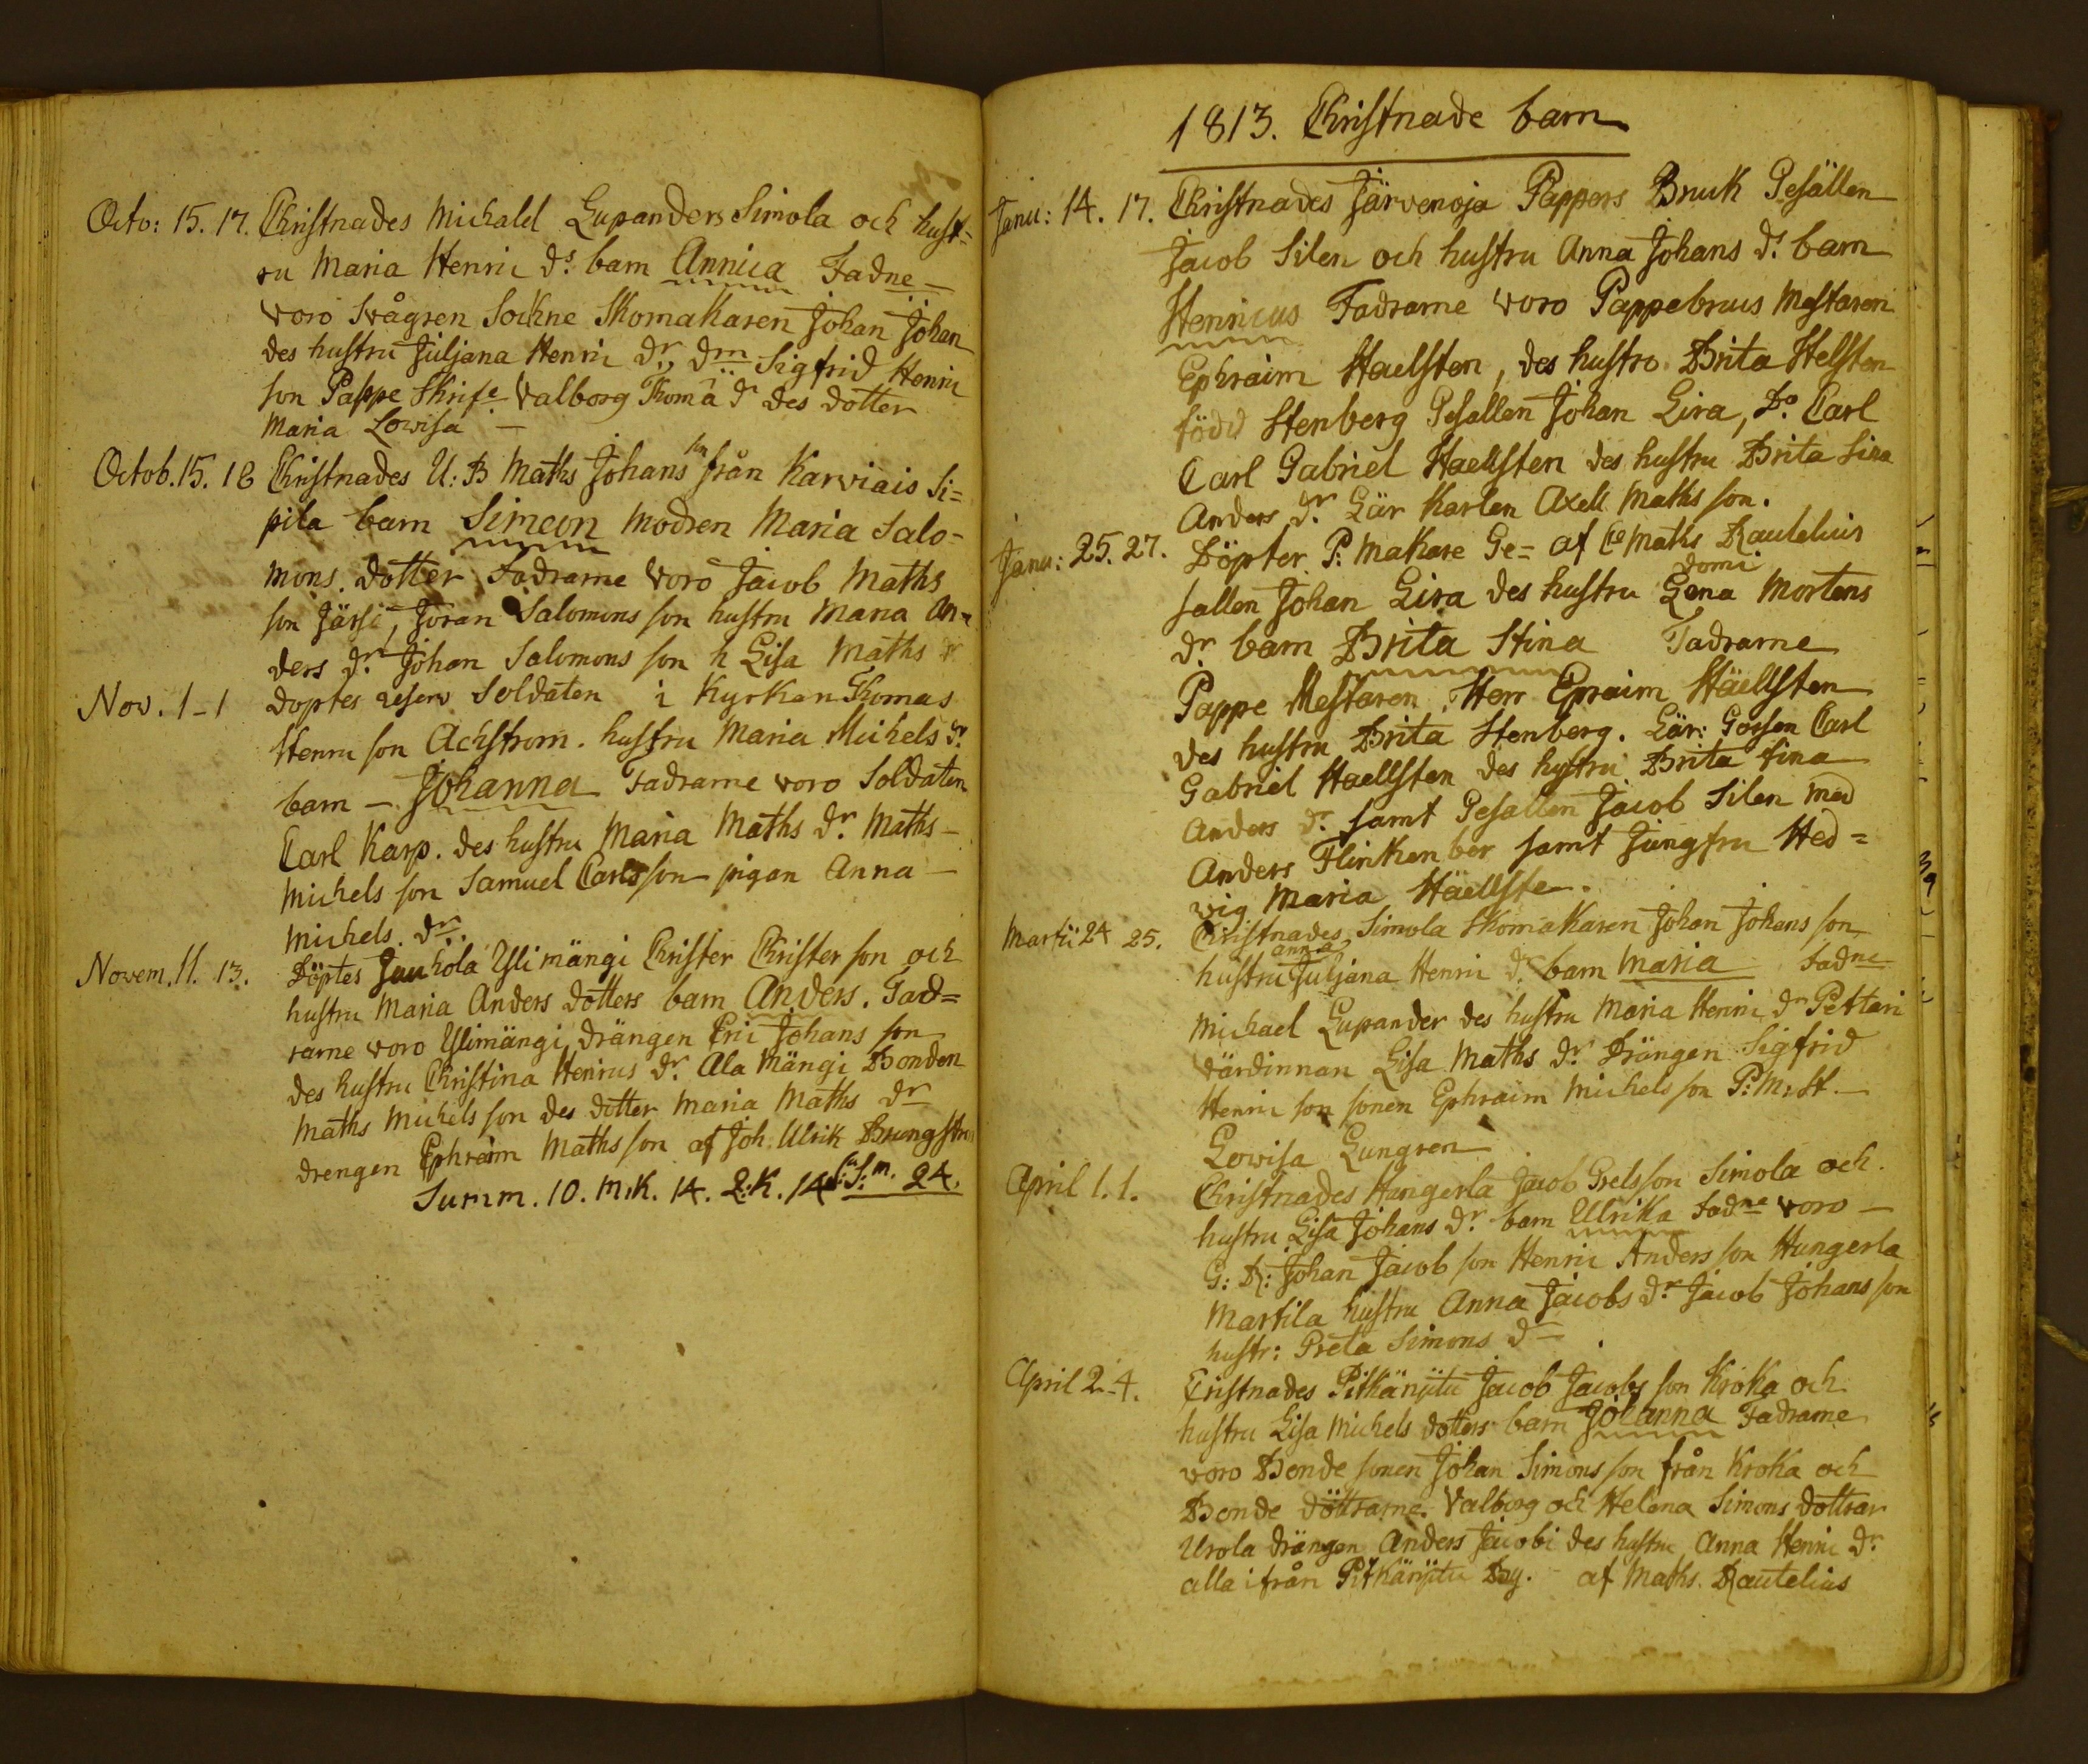 Octo: 15. 17. Christnades Michaël Lupanders Simola och hust=
ru Maria Henric ds. barn Annica Fadne
voro Svågren Sockne Skomakaren Johan Johan
des hustru Juljana Henric dr., Sigfrid Henric
son Pappe Skrife Valborg Thoma dr des dotter
Maria Lovisa
Octob. 15. 18 Christnades U: B Maths Johans sn från Karviais Si=
pila barn Simeon modren Maria Salo-
mons. dotter Fadrarne voro Jacob Maths
son Järsi, Joran Salomons son hustru Maria An-
ders dr. Johan Salomons son h Lisa Maths dr
Nov. 1-1 doptes reserv Soldaten i Kyrkan Thomas
Henric son Achstrom. hustru Maria Michels dr.
barn - Johanna Fadrarne voro Soldaten
Carl Karp. des hustru Maria Maths dr. Maths-
Michels son Samuel Carlsson pigan Anna
Michels. dr.
Novem. 11. 13. Döptes Jankola Ylimängi Christer Christer son och
hustru Maria Anders dotters barn Anders. Fad=
rarne voro Ylimängi drängen Eric Johans son
des hustru Christina Henrics dr. Ala Mängi Bonden
Maths Michels son des dotter Maria Maths dr
drengen Ephraim Maths son af Joh. Ulrik
Summ. 10. M.K. 14. Q:K. 14 S:m. 24.
1813. Christnade barn
Janu: 14. 17. Christnades Järvenoja Pappers Bruk Gesällen
Jacob Silen och hustru Anna Johans d. barn
Henricus Fadrarne voro Pappebrus Mestaren
Ephraim Haelsten, des hustro. Brita Helsten
född Stenberg Gesallen Johan Lira, Do Carl
Carl Gabriel Haellsten des hustru Brita Lisa
Anders dr. Lär Karlen Axell Maths son.
Janu: 25. 27. Döpter P: Makare Ge= af Maths Rautelius
domi
sallen Johan Lira des hustru Lena Mortens
dr. barn Brita Stina Fadrarne
Pappe Mestaren Herr Epraim Häellsten
des hustru Brita Stenberg. Lär: Gossen Carl
Gabriel Haellsten des hustru Brita Stina
Anders dr. samt Gesallen Jacob Silen med
Anders Flinkenber samt Jungfru Hed=
wig Maria Häellste.
Martii 24 25. Christnades Simola Skomakaren Johan Johans son
anna
hustru Juljana Henric dr barn Maria Fadne
Michael Lupander des hustru Maria Henric dr Pettari
värdinnan Lisa Maths dr. Drängen Sigfrid
Henric son sonen Ephraim Michels son P: M: St.
Lowisa Lungren
April 1. 1. Christnades Hungerla Jacob Grelsson Simola och
hustru Lisa Johans dr. barn Ulrika Fadne voro -
G: D: Johan Jacob son Henric Anders son Hungerla
Martila hustru Anna Jacobs dr. Jacob Johans son
hustr: Greta Simons d
April 2-4. Cristnades Pitkänjitu Jacob Jacobs son Kroka och
hustru Lisa Michels dotters barn Johanna Fadrarne
voro Bonde sonen Johan Simons son från Kroka och
Bonde döttrarne. Valborg och Helena Simons dottrar
Urola drängen Anders Jacobi des hustru Anna Henric dr.
alla ifrån Pitkänjitu By. af Maths. Rautelius